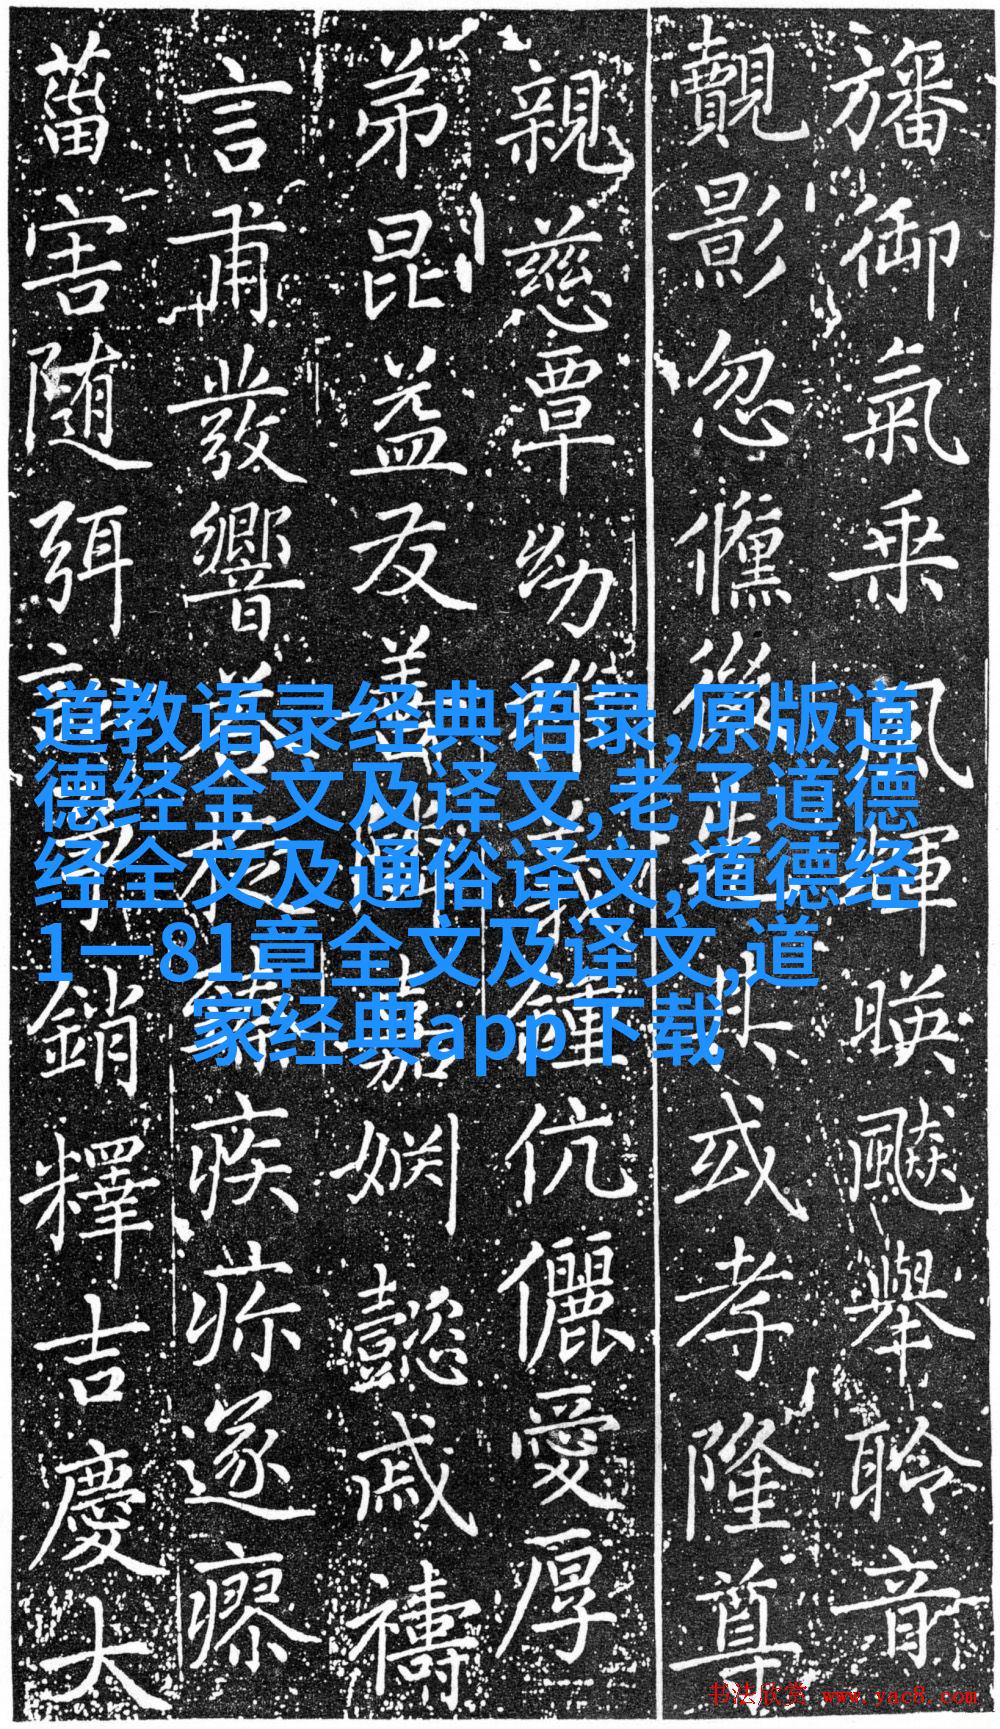 旛御氣乘風暉暎飈舉聆音
覿影忽後其或孝隆尊
親慈覃幼稚義鍾伉儷愛厚
弟昆益友善隣嘉姻懿戚禱
言甫發響答疾疢遂瘳
菑害隨弭銷釋吉慶大
道教语录经典语录,原版道
德经全文及译文,老子道德
经全文及通俗译文,道德经
1一81章全文及译文,道
家经典app下载
书法欣赏 www.yac8.com